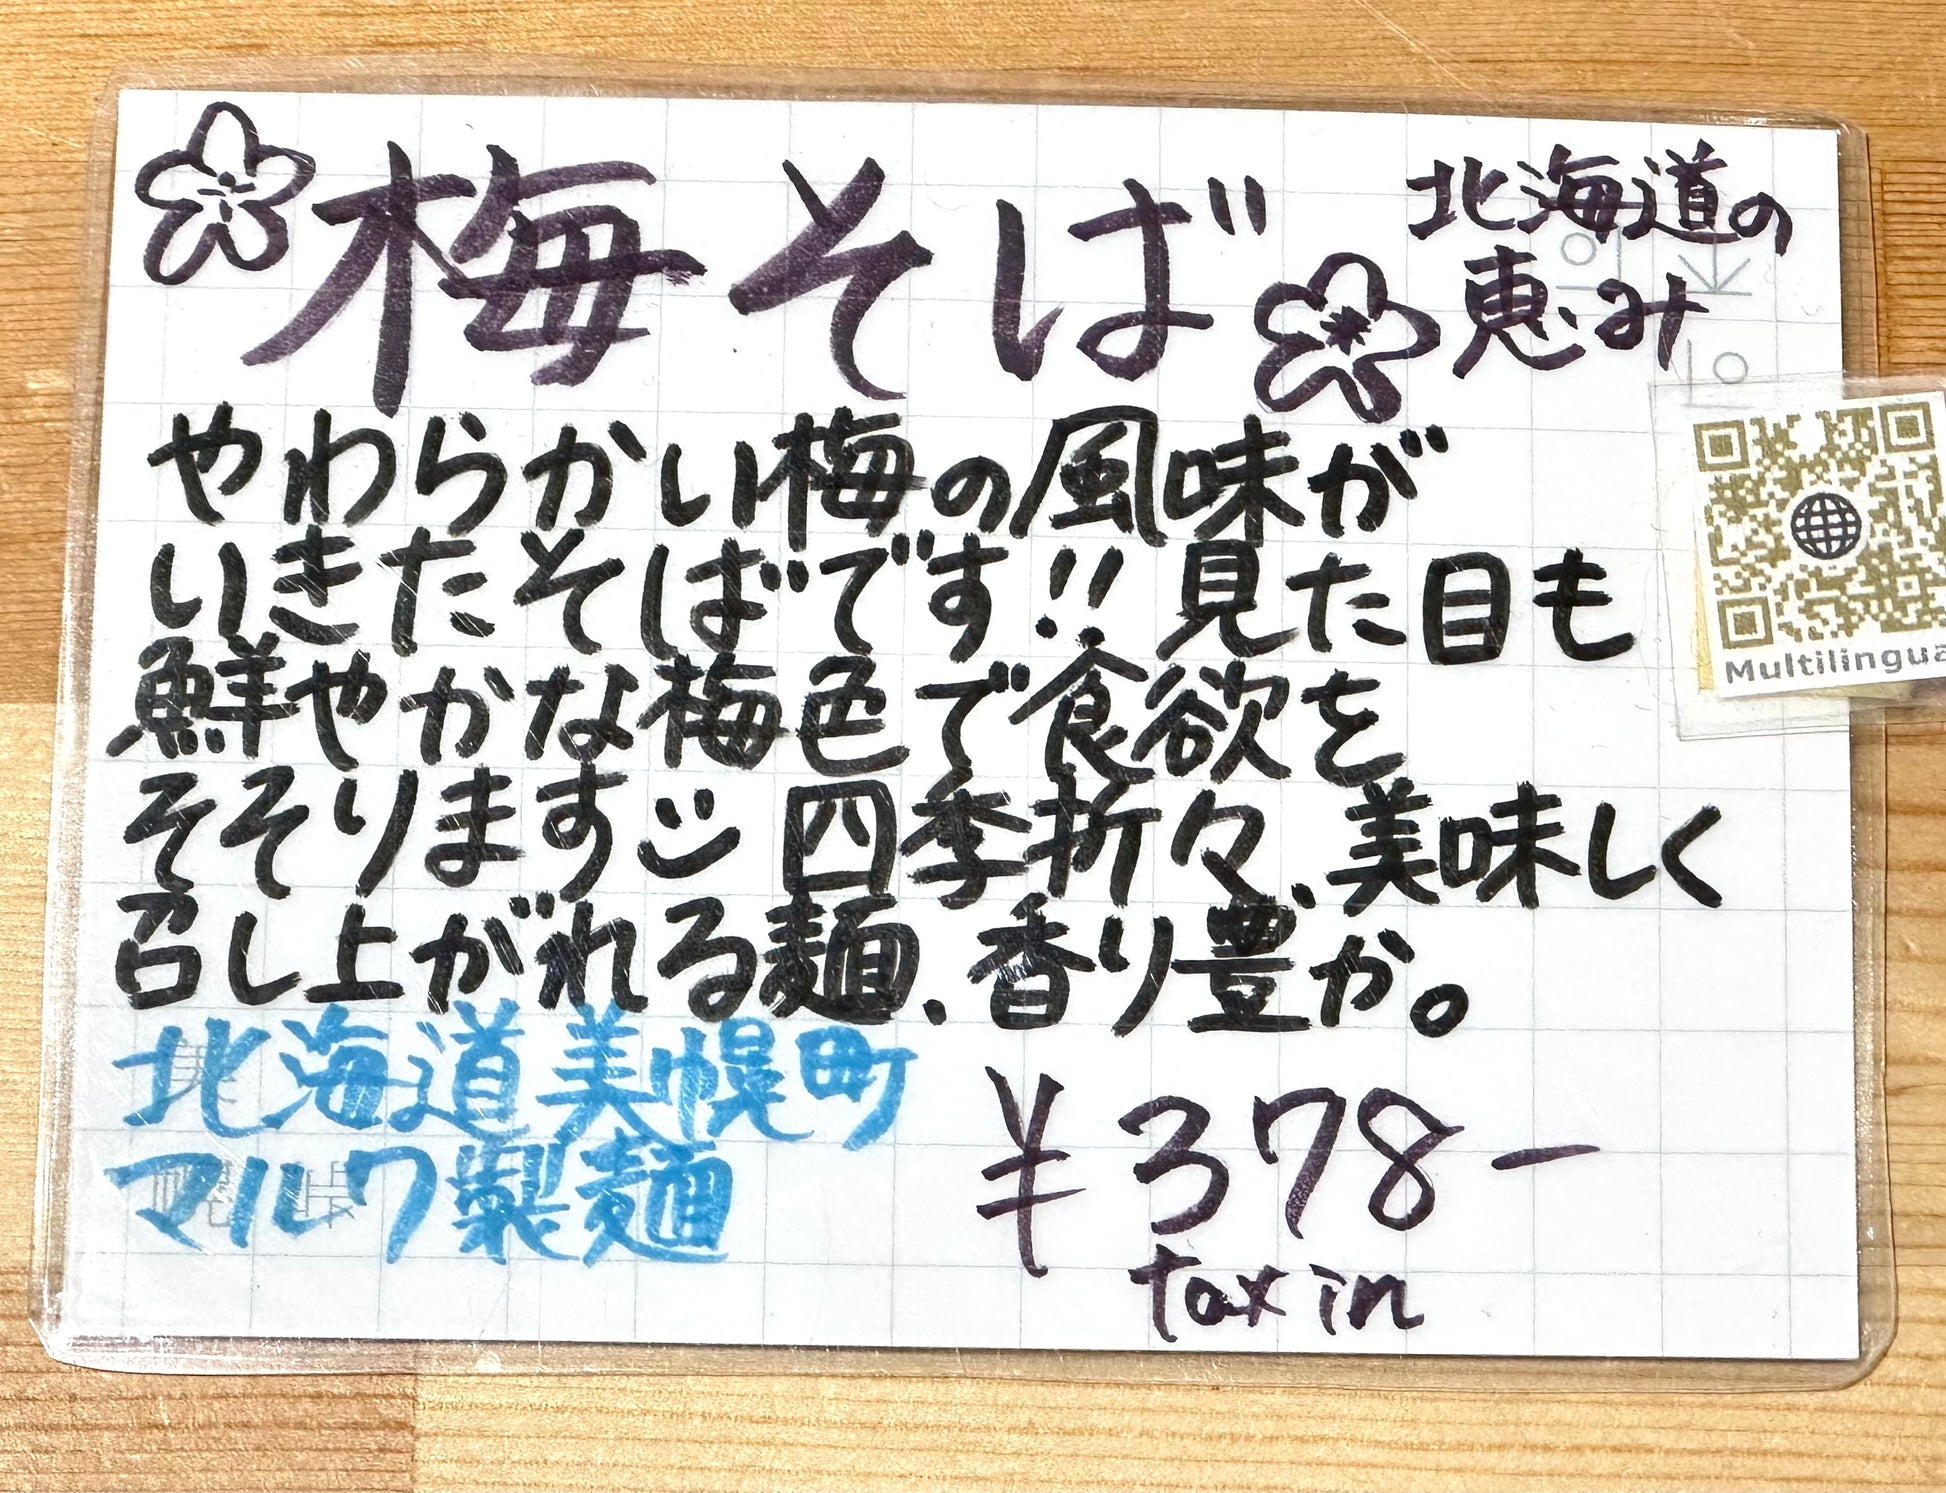 梅そば
北海道の
恵み
やわらかい梅の風味が
いきたそばです!! 見た目も
鮮やかな梅色で食欲を
そそります 四季折々、美味しく
召し上がれる麺、香り豊か。
北海道美幌町
マルワ製麺
¥378-
tax in
Multilingua